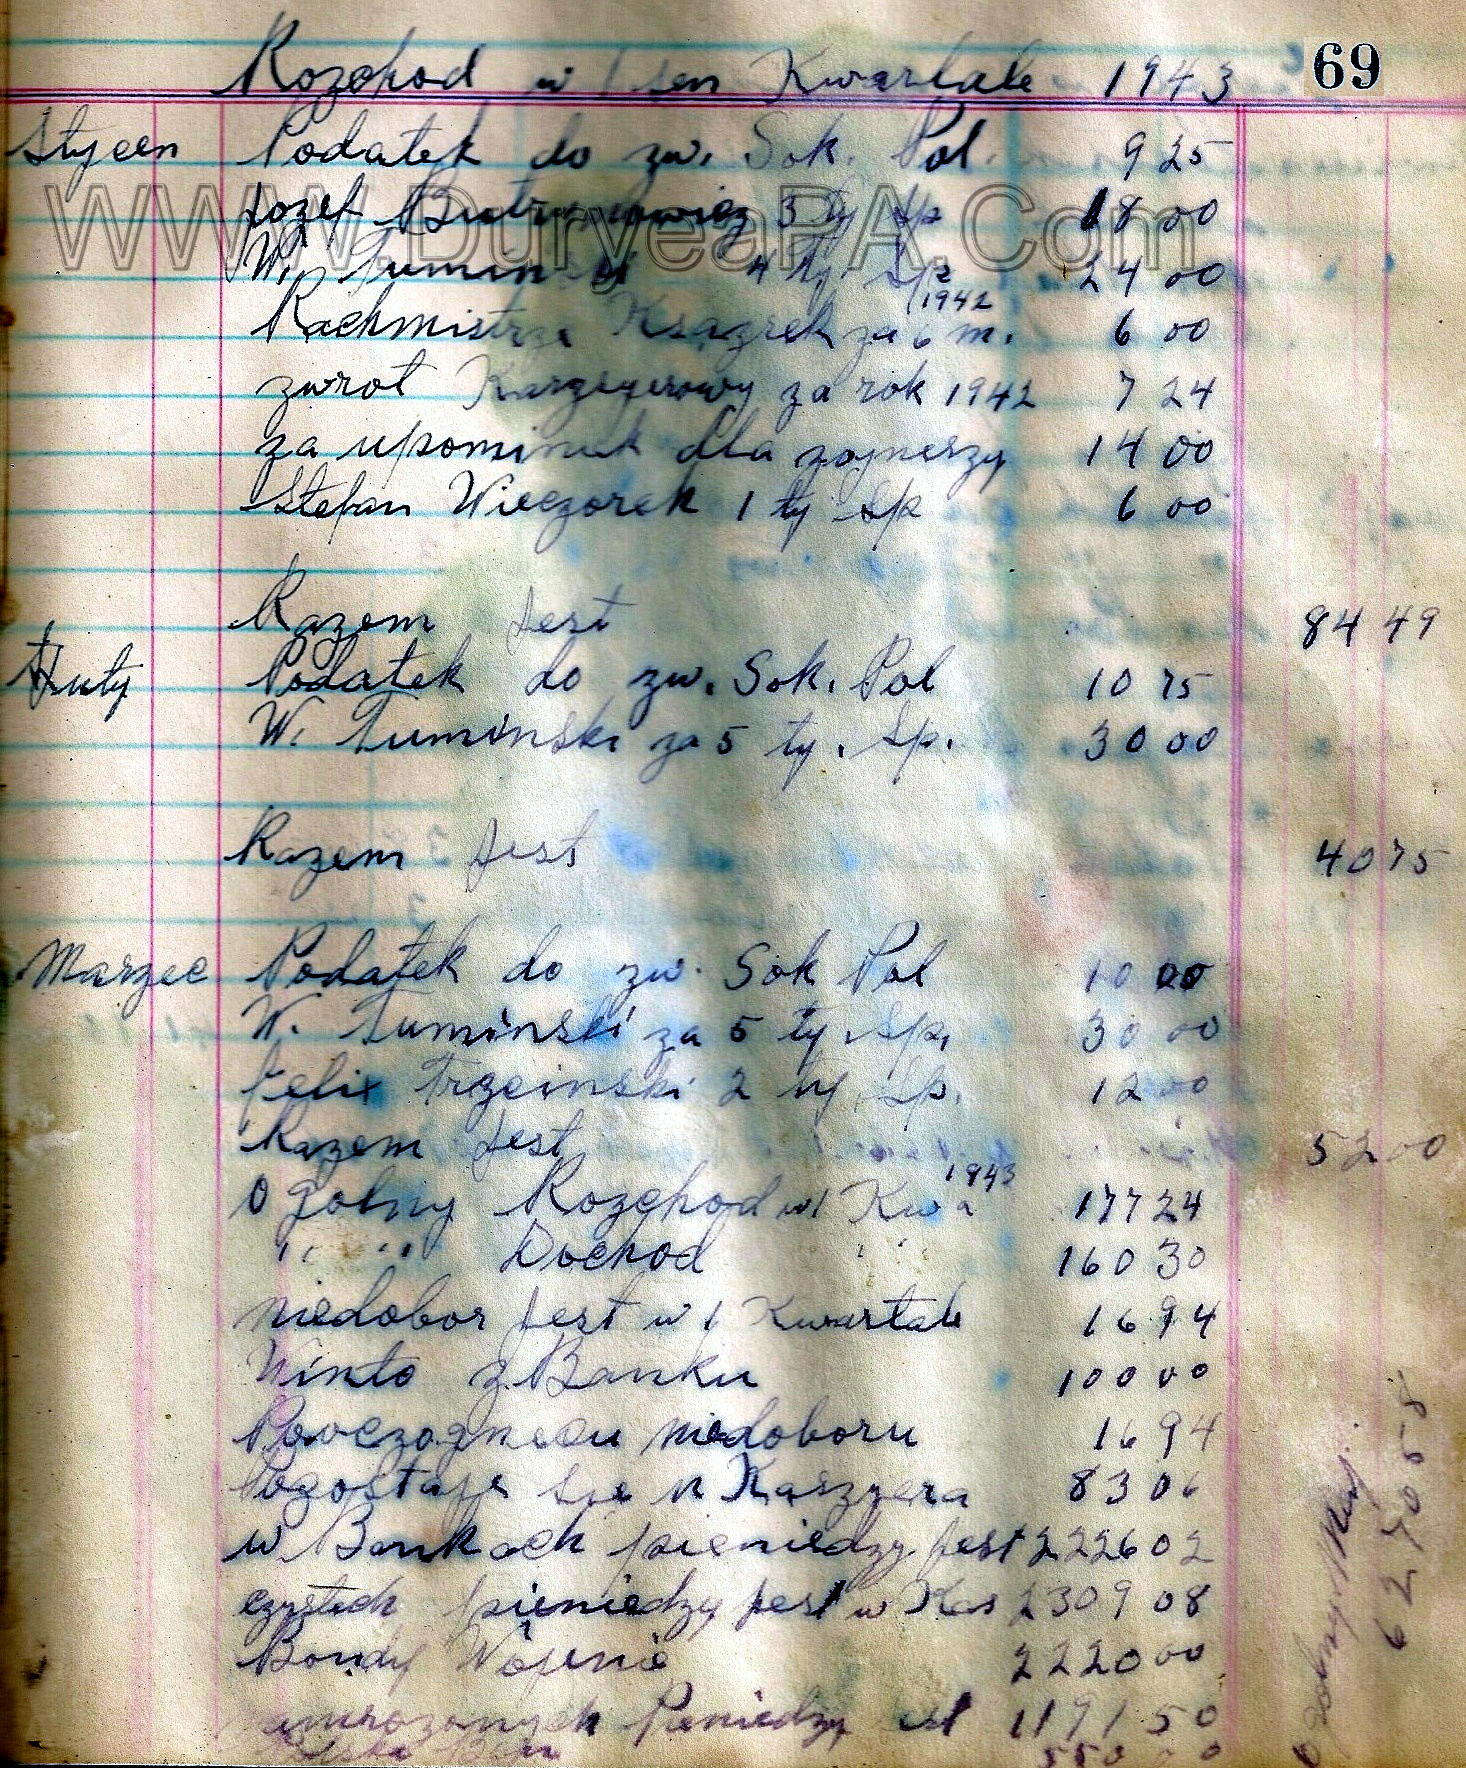 69
Rozchod w 1 szen Kwartale 1943
Styczen Podatek do zw. Sok. Pol. 9 25
Jozef 3 ty Sp 18 00
W. Tuminski 4 ty Sp 24 00
1942
Rachmistrz Ksazrek za 6 m. 6 00
zwrot Kasyerowy za rok 1942 7 24
za upominek dla zojnerzy 14 00
Stefan Wieczorek 1 ty Sp 6 00
www.DuryeaPA.Com
Razem jest 84 49
Luty Podatek do zw. Sok. Pol 10 75
W. Tuminski za 5 ty. Sp. 30 00
Razem jest 40 75
Marzec Podatek do zw. Sok Pol 10 00
W. Tuminski za 5 ty. Sp. 30 00
Felix Trzcinski 2 ty. Sp. 12 00
Razem jest 52 00
1943
Ogolny Rozchod w 1 Kwa 177 24
" " Dochod " " 160 30
niedobor jest w 1 Kwartale 16 94
Winto z Banku 100 00
niedoboru 16 94
Pozostaje sie u Kaszyera 83 06
w Bankach pieniedzy jest 2226 02
czystech pieniedzy jest w Kas 2309 08
Bondy Wojene 2220 00
zamrozonych Pieniedzy 1191 50
550 00
6270 58